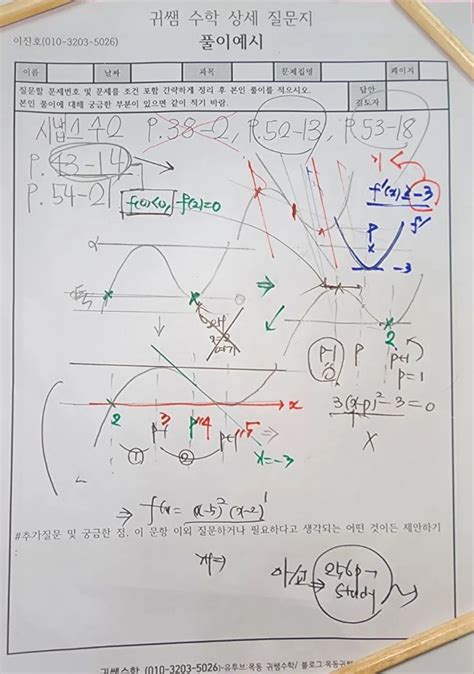 귀쌤 수학 상세 질문지
이진호(010-3203-5026)
풀이예시
이름 날짜 과목 문제집명 페이지
질문할 문제번호 및 문제를 조건 포함 간략하게 정리 후 본인 풀이를 적으시오.
본인 풀이에 대해 궁금한 부분이 있으면 같이 적기 바람.
답안
검토자
P.38-2, P.52-13, P.53-18
P.43-14
P.54-21
f(0)<0, f(2)=0
f'(x)≥-3
f'
P
-3
α
2
P-1 P P+1
0
P=1
3(x-p)²-3=0
X
2 3 P"4 P+1"5 x
① ②
x=-3
⇒ f(x)=(x-5)²(x-2)'
#추가질문 및 궁금한 점. 이 문항 이외 질문하거나 필요하다고 생각되는 어떤 것이든 제안하기
:
study
귀쌤수학 (010-3203-5026)-유투브:목동 귀쌤수학/ 블로그:목동귀쌤